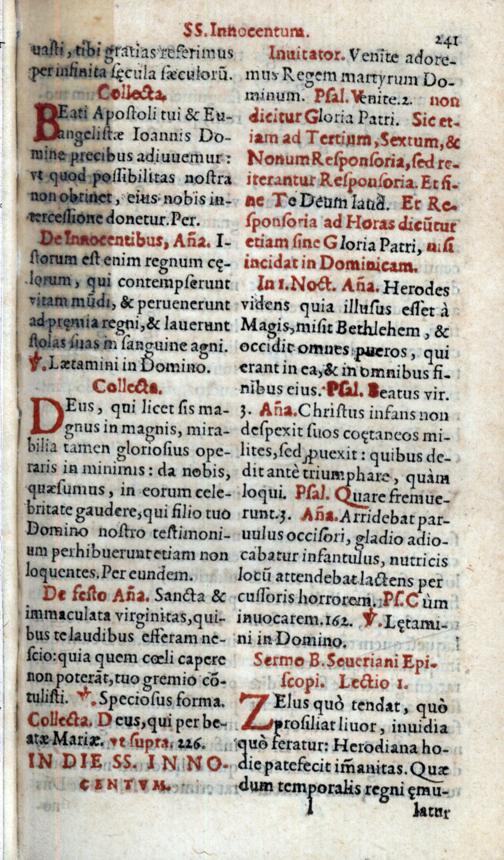 SS. Innocentum.
241
uasti, tibi gratias referimus
per infinita sęcula sæculorū.
Collecta.
BEati Apostoli tui & Eu-
angelistæ Ioannis Do-
mine precibus adiuuemur:
vt quod possibilitas nostra
non obtinet, eius nobis in-
tercessione donetur. Per.
De Innocentibus, Aña. I-
storum est enim regnum cę-
lorum, qui contempserunt
vitam mūdi, & peruenerunt
ad pręmia regni, & lauerunt
stolas suas in sanguine agni.
℣. Lætamini in Domino.
Collecta.
DEus, qui licet sis ma-
gnus in magnis, mira-
bilia tamen gloriosius ope-
raris in minimis: da nobis,
quæsumus, in eorum cele-
britate gaudere, qui filio tuo
Domino nostro testimoni-
um perhibuerunt etiam non
loquentes. Per eundem.
De festo Aña. Sancta &
immaculata virginitas, qui-
bus te laudibus efferam ne-
scio: quia quem cœli capere
non poterāt, tuo gremio cō-
tulisti. ℣. Speciosus forma.
Collecta. Deus, qui per be-
atæ Mariæ. vt supra. 226.
IN DIE SS. INNO-
CENTVM.
Inuitator. Venite adore-
mus Regem martyrum Do-
minum. Psal. Venite. 2. non
dicitur Gloria Patri. Sic et-
iam ad Tertium, Sextum, &
Nonum Responsoria, sed re-
iterantur Responsoria. Et fi-
ne Te Deum laud. Et Re-
sponsoria ad Horas dicūtur
etiam sine Gloria Patri, nisi
incidat in Dominicam.
In I. Noct. Aña. Herodes
videns quia illusus esset à
Magis, misit Bethlehem, &
occidit omnes pueros, qui
erant in ea, & in omnibus fi-
nibus eius. Psal. Beatus vir.
3. Aña. Christus infans non
despexit suos coętaneos mi-
lites, sed puexit: quibus de-
dit antè triumphare, quàm
loqui. Psal. Quare fremue-
runt. 3. Aña. Arridebat par-
uulus occisori, gladio adio-
cabatur infantulus, nutricis
locū attendebat lactens per
cussoris horrorem. Ps. Cùm
inuocarem. 162. ℣. Lętami-
ni in Domino.
Sermo B. Seueriani Epi-
scopi. Lectio I.
ZElus quò tendat, quò
prosiliat liuor, inuidia
quò feratur: Herodiana ho-
die patefecit im̃anitas. Quæ
dum temporalis regni ęmu-
l
latur